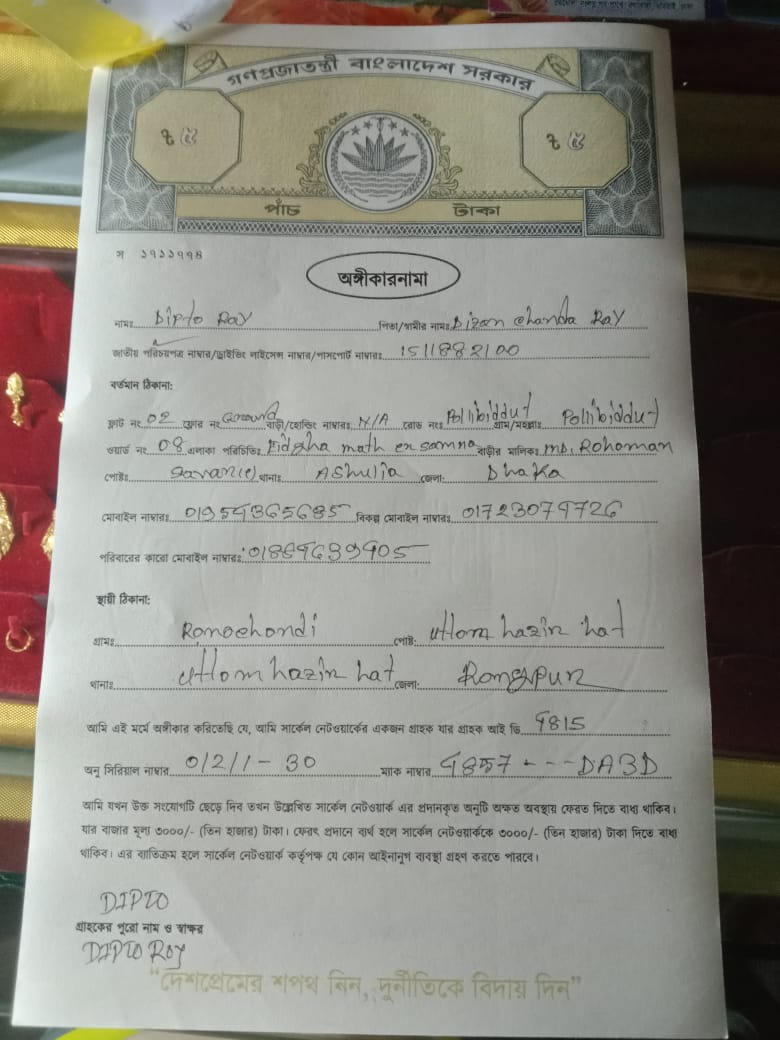 গণপ্রজাতন্ত্রী বাংলাদেশ সরকার
৳ ৫
৳ ৫
পাঁচ টাকা
স ১৭১১৭৭৪
অঙ্গীকারনামা
নামঃ Dipto Ray পিতা/স্বামীর নামঃ Dizan Chanda Ray
জাতীয় পরিচয়পত্র নাম্বার/ড্রাইভিং লাইসেন্স নাম্বার/পাসপোর্ট নাম্বারঃ 1511882100
বর্তমান ঠিকানা:
ফ্লাট নং 02 ফ্লোর নং Goround বাড়ী/হোল্ডিং নাম্বারঃ N/A রোড নংঃ Pollibiddut গ্রাম/মহল্লাঃ Pollibiddut
ওয়ার্ড নং 08 এলাকা পরিচিতিঃ Eidgha math er samna বাড়ীর মালিকঃ MD. Rohoman
পোষ্টঃ থানাঃ Ashulia জেলা: Dhaka
মোবাইল নাম্বারঃ বিকল্প মোবাইল নাম্বারঃ
পরিবারের কারো মোবাইল নাম্বারঃ
স্থায়ী ঠিকানা:
গ্রামঃ Romochondi পোষ্ট: uttom hazir hat
থানাঃ uttom hazir hat জেলা: Rongpur
আমি এই মর্মে অঙ্গীকার করিতেছি যে, আমি সার্কেল নেটওয়ার্কের একজন গ্রাহক যার গ্রাহক আই ডি 9815
অনু সিরিয়াল নাম্বার 0/2/1-30 ম্যাক নাম্বার DA3D
আমি যখন উক্ত সংযোগটি ছেড়ে দিব তখন উল্লেখিত সার্কেল নেটওয়ার্ক এর প্রদানকৃত অনুটি অক্ষত অবস্থায় ফেরত দিতে বাধ্য থাকিব।
যার বাজার মূল্য ৩০০০/- (তিন হাজার) টাকা। ফেরৎ প্রদানে ব্যর্থ হলে সার্কেল নেটওয়ার্ককে ৩০০০/- (তিন হাজার) টাকা দিতে বাধ্য
থাকিব। এর ব্যতিক্রম হলে সার্কেল নেটওয়ার্ক কর্তৃপক্ষ যে কোন আইনানুগ ব্যবস্থা গ্রহণ করতে পারবে।
DIPTO
গ্রাহকের পুরো নাম ও স্বাক্ষর
DIPTO ROY
"দেশপ্রেমের শপথ নিন, দুর্নীতিকে বিদায় দিন"